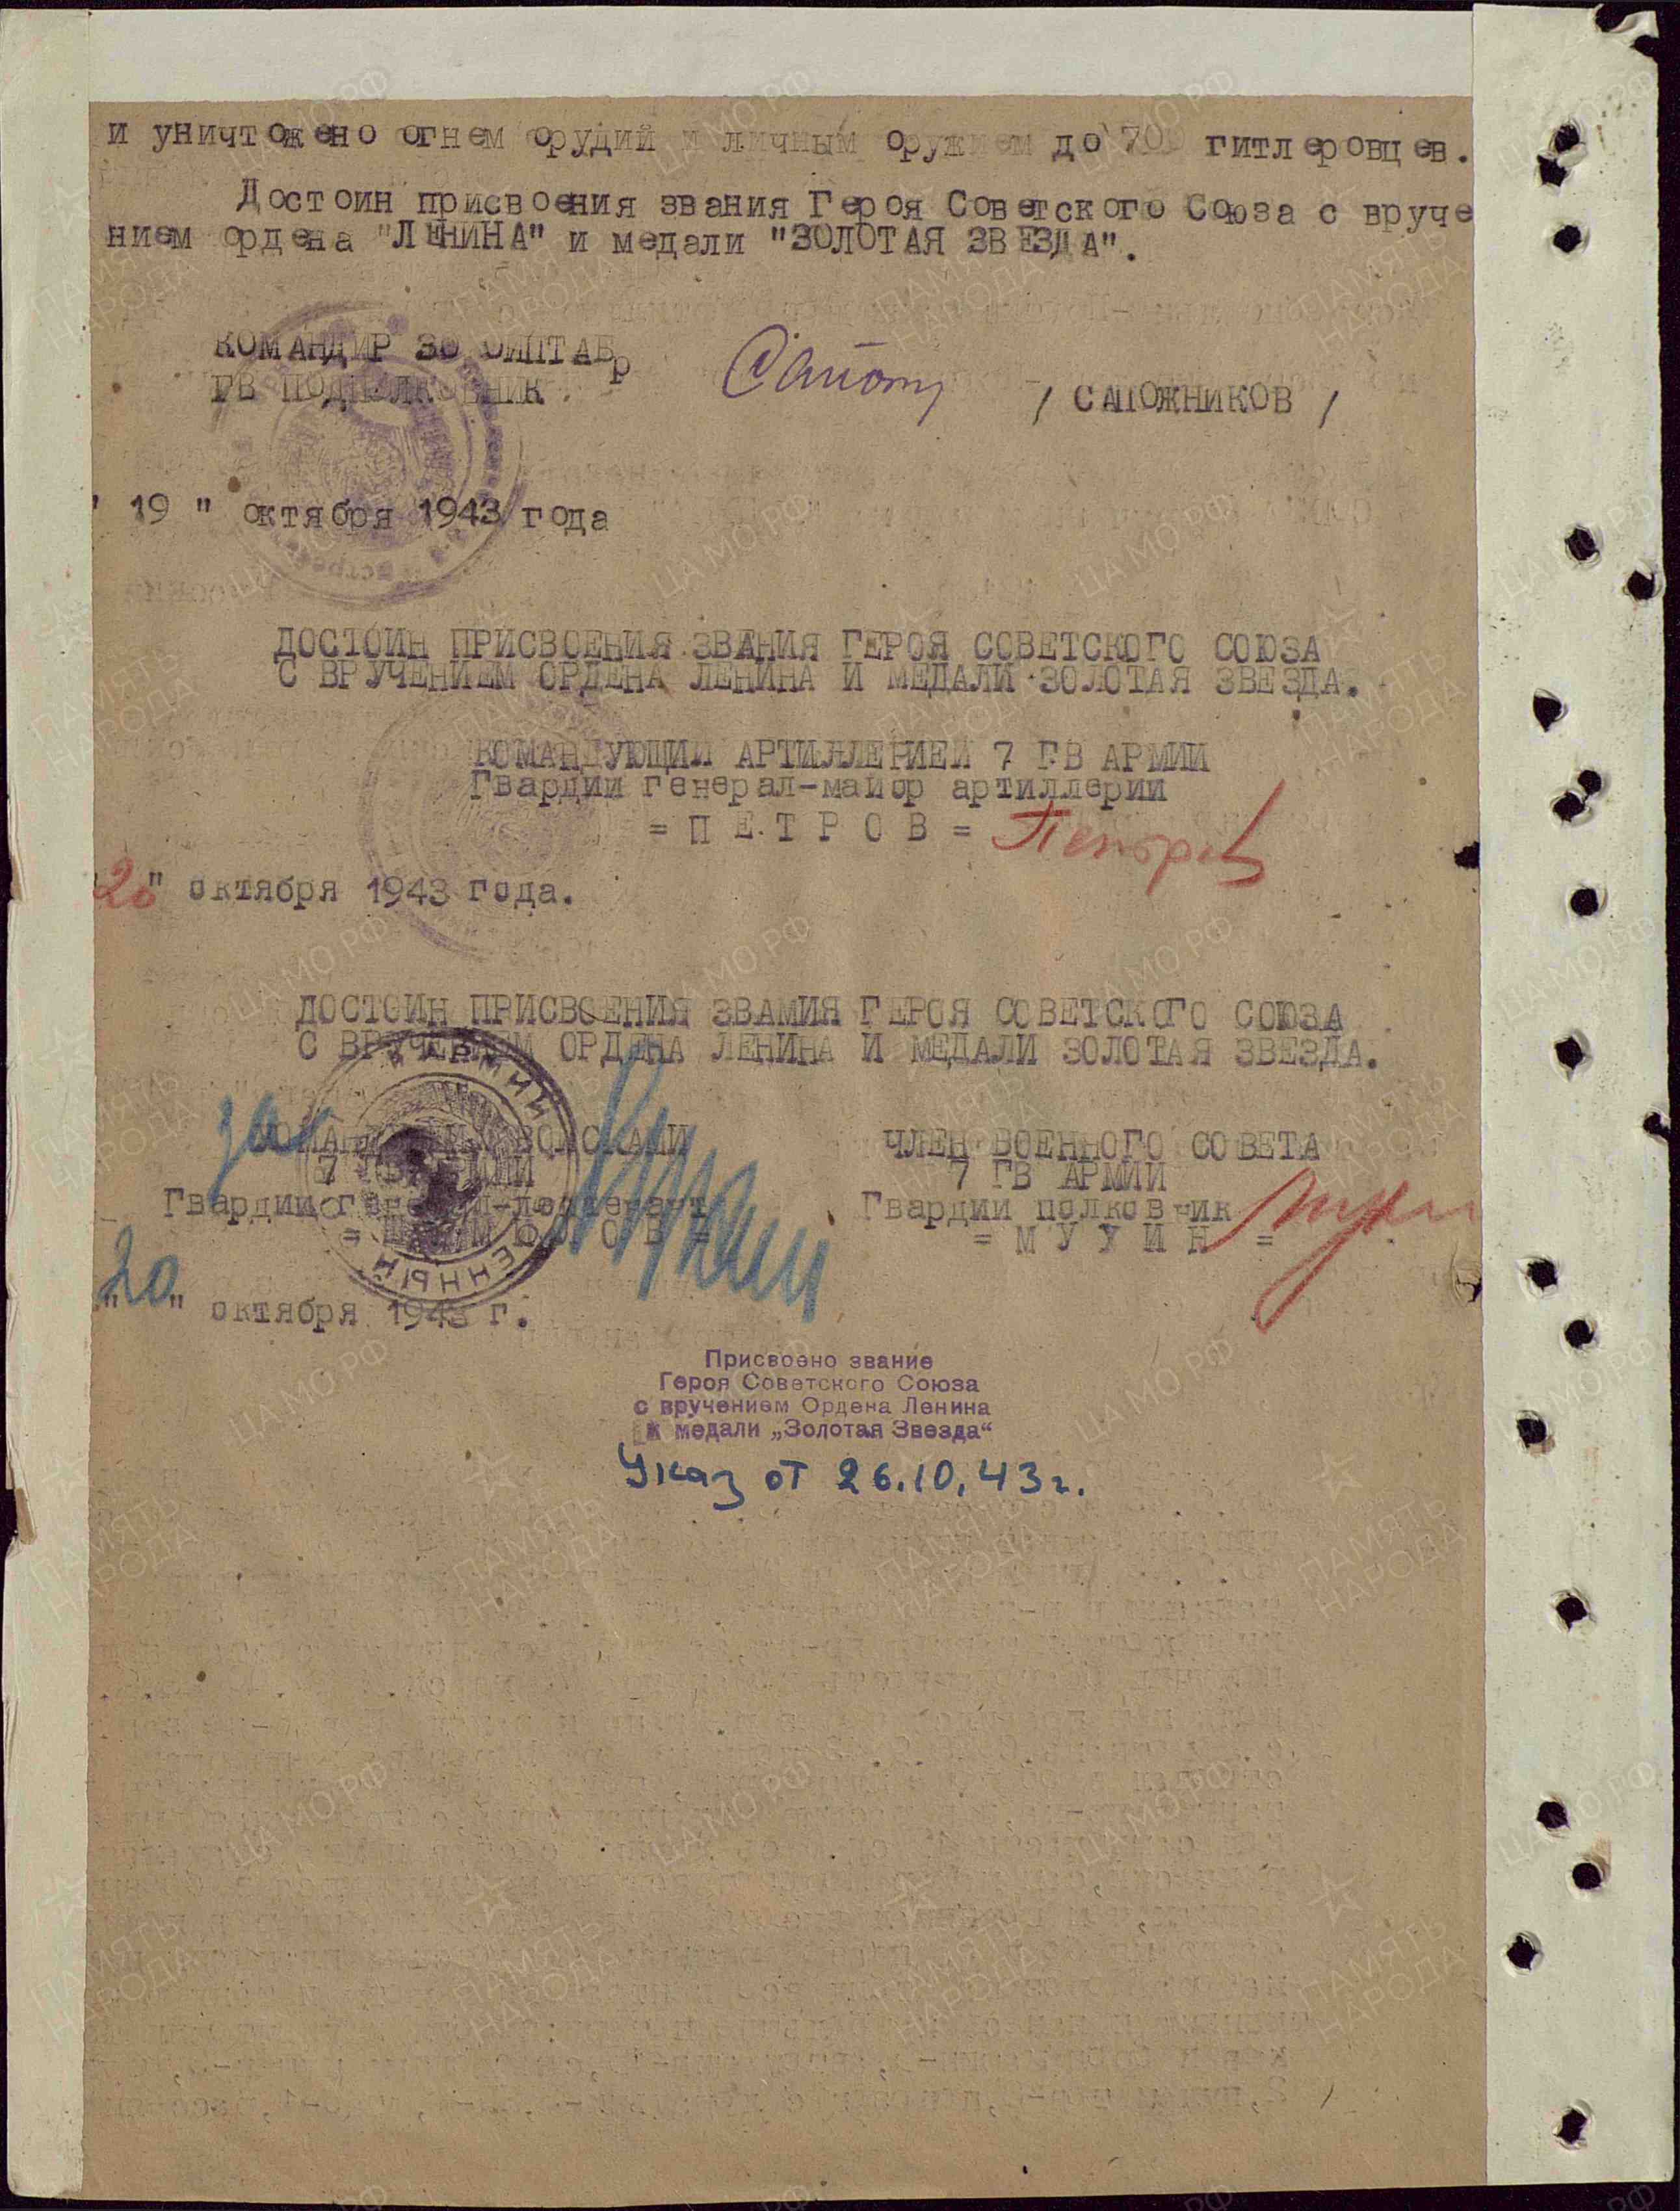 и уничтожено огнем орудий и личным оружием до 700 гитлеровцев.
Достоин присвоения звания Героя Советского Союза с вруче
нием ордена "ЛЕНИНА" и медали "ЗОЛОТАЯ ЗВЕЗДА".
КОМАНДИР 30 ОИПТАБр
ГВ ПОДПОЛКОВНИК
/ САПОЖНИКОВ /
" 19 " октября 1943 года
ДОСТОИН ПРИСВОЕНИЯ ЗВАНИЯ ГЕРОЯ СОВЕТСКОГО СОЮЗА
С ВРУЧЕНИЕМ ОРДЕНА ЛЕНИНА И МЕДАЛИ ЗОЛОТАЯ ЗВЕЗДА.
КОМАНДУЮЩИЙ АРТИЛЛЕРИЕЙ 7 ГВ АРМИИ
Гвардии генерал-майор артиллерии
= П Е Т Р О В = Петров
20" октября 1943 года.
ДОСТОИН ПРИСВОЕНИЯ ЗВАМИЯ ГЕРОЯ СОВЕТСКОГО СОЮЗА
С ВРУЧЕНИЕМ ОРДЕНА ЛЕНИНА И МЕДАЛИ ЗОЛОТАЯ ЗВЕЗДА.
ВОЙСКАМИ
7
Гвардии генерал-лейтенант
ЧЛЕН ВОЕННОГО СОВЕТА
7 ГВ АРМИИ
Гвардии полковник
= М У Х И Н =
"20" октября 1943 г.
Присвоено звание
Героя Советского Союза
с вручением Ордена Ленина
и медали „Золотая Звезда“
Указ от 26.10.43г.